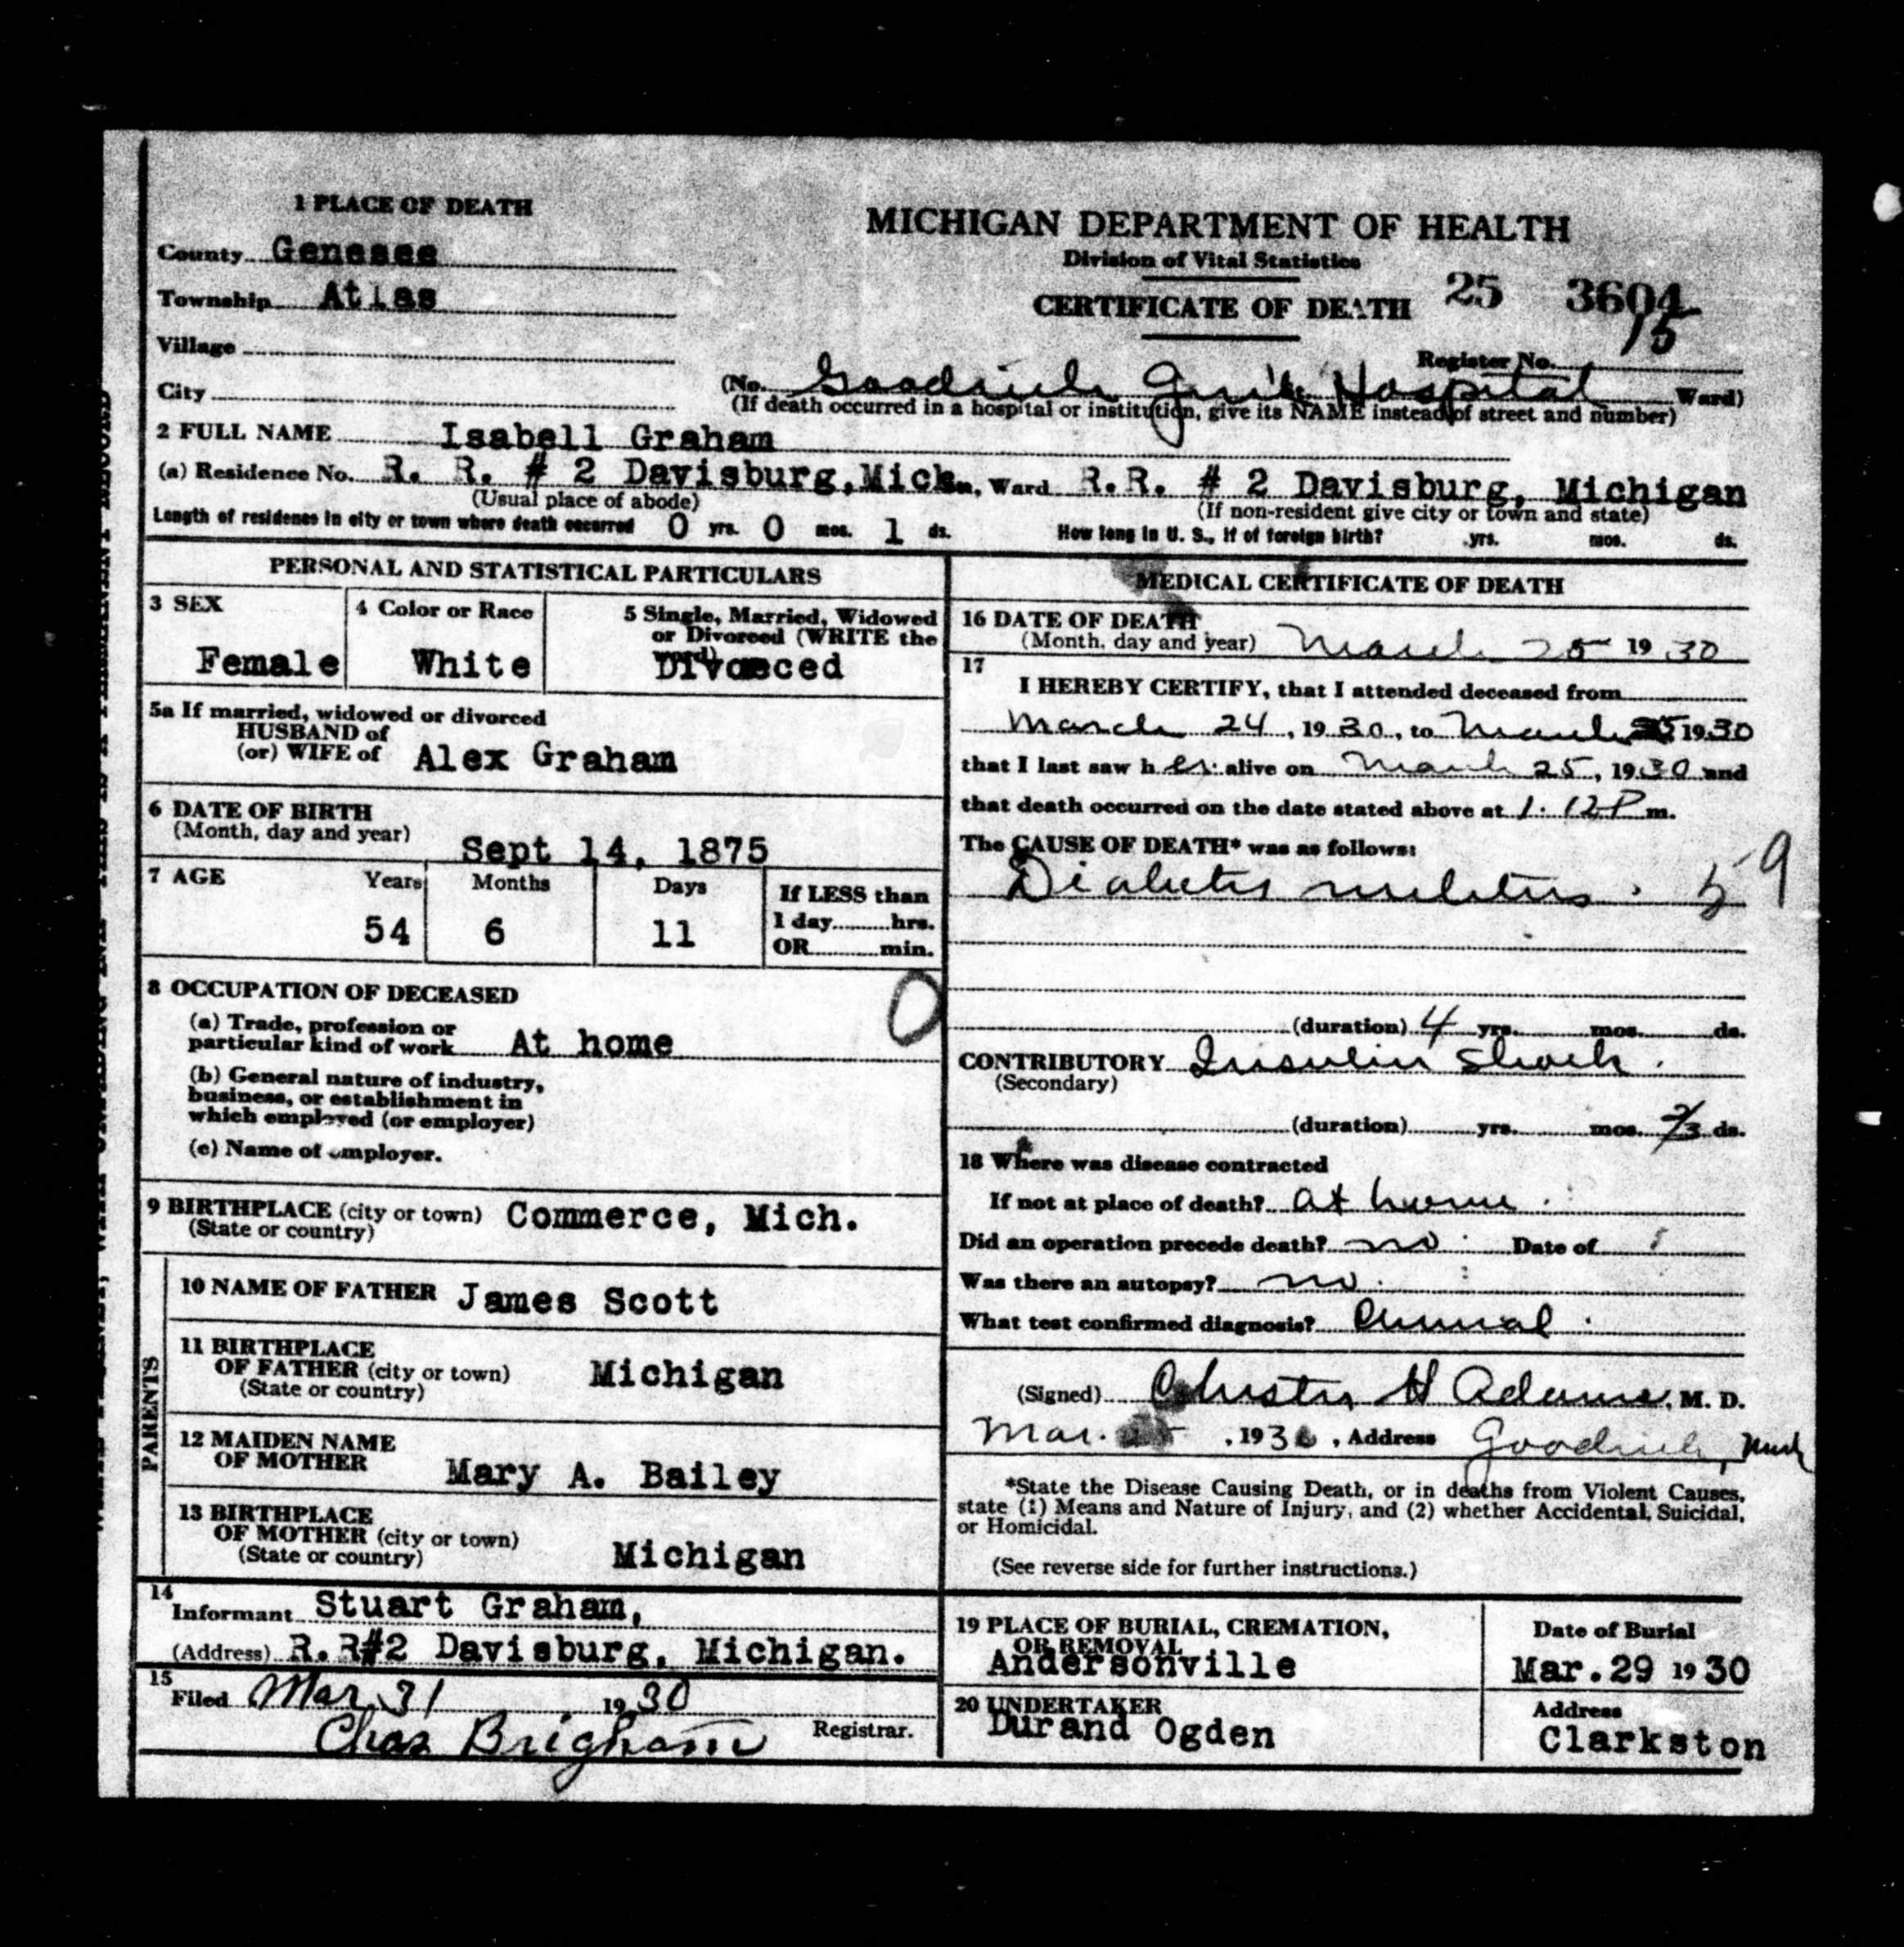 1 PLACE OF DEATH
County Genesee
Township Atlas
Village
City
MICHIGAN DEPARTMENT OF HEALTH
Division of Vital Statistics
CERTIFICATE OF DEATH 25 3604
Register No. 15
(No. Goodrich Hospital Ward)
(If death occurred in a hospital or institution, give its NAME instead of street and number)
2 FULL NAME Isabell Graham
(a) Residence No. R. R. # 2 Davisburg, Mich., Ward R.R. # 2 Davisburg, Michigan
(Usual place of abode) (If non-resident give city or town and state)
Length of residence in city or town where death occurred 0 yrs. 0 mos. 1 ds. How long in U. S., if of foreign birth? yrs. mos. ds.
PERSONAL AND STATISTICAL PARTICULARS
3 SEX
Female
4 Color or Race
White
5 Single, Married, Widowed
or Divorced (WRITE the
word)
Divorced
5a If married, widowed or divorced
HUSBAND of
(or) WIFE of Alex Graham
6 DATE OF BIRTH
(Month, day and year) Sept 14, 1875
7 AGE Years Months Days If LESS than
1 day hrs.
54 6 11 OR min.
8 OCCUPATION OF DECEASED
(a) Trade, profession or
particular kind of work At home
(b) General nature of industry,
business, or establishment in
which employed (or employer)
(c) Name of employer.
9 BIRTHPLACE (city or town) Commerce, Mich.
(State or country)
PARENTS
10 NAME OF FATHER James Scott
11 BIRTHPLACE
OF FATHER (city or town) Michigan
(State or country)
12 MAIDEN NAME
OF MOTHER Mary A. Bailey
13 BIRTHPLACE
OF MOTHER (city or town)
(State or country) Michigan
14
Informant Stuart Graham,
(Address) R. R#2 Davisburg, Michigan.
15
Filed Mar 31 1930
Chas Brigham Registrar.
MEDICAL CERTIFICATE OF DEATH
16 DATE OF DEATH
(Month, day and year) March 25 1930
17
I HEREBY CERTIFY, that I attended deceased from
March 24, 1930, to March 25 1930
that I last saw her alive on March 25, 1930 and
that death occurred on the date stated above at 1:12 P m.
The CAUSE OF DEATH* was as follows:
Diabetes melitus. 59
(duration) 4 yrs. mos. ds.
CONTRIBUTORY Insulin Shock.
(Secondary)
(duration) yrs. mos. 2/3 ds.
18 Where was disease contracted
If not at place of death? at home.
Did an operation precede death? no. Date of
Was there an autopsy? no.
What test confirmed diagnosis?
(Signed) H Adams, M. D.
Mar. 25, 1930, Address Goodrich, Mich
*State the Disease Causing Death, or in deaths from Violent Causes,
state (1) Means and Nature of Injury, and (2) whether Accidental, Suicidal,
or Homicidal.
(See reverse side for further instructions.)
19 PLACE OF BURIAL, CREMATION,
OR REMOVAL
Andersonville
Date of Burial
Mar. 29 1930
20 UNDERTAKER
Durand Ogden
Address
Clarkston